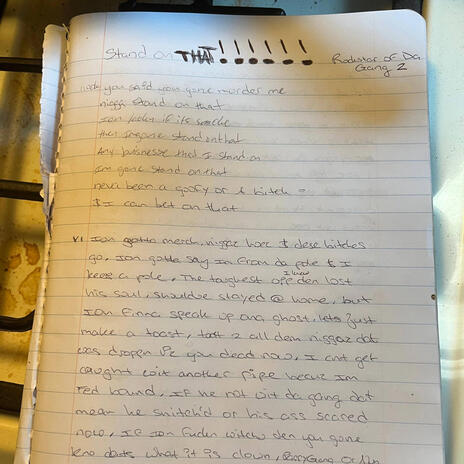 Stand on THAT!!!!!! Rockstar of Da
Gang 2
you said you gone murder me
nigga stand on that
Ion fuckin if its smoke
then Imgone stand on that
Any buisnesse that I stand on
Im gone stand on that
neva been a goofy or a bitch
$ I can bet on that
V1 Ion gotta merch, niggaz hoes $ dese bitches
go, Ion gotta say Im from da pole $ I
keep a pole, The toughest opp I knew den lost
his soul, shoulve stayed @ home, but
Ion finna speak up ona ghost, lets just
make a toast, toast 2 all dem niggaz dat
was droppn you dead now, I cant get
caught wit another pipe becuz Im
red bound, If he not wit da gang dat
mean he snitch'd or his ass scared
now, If Ion fuckn witchu den you gone
kno dats what it is clown, Gang Or